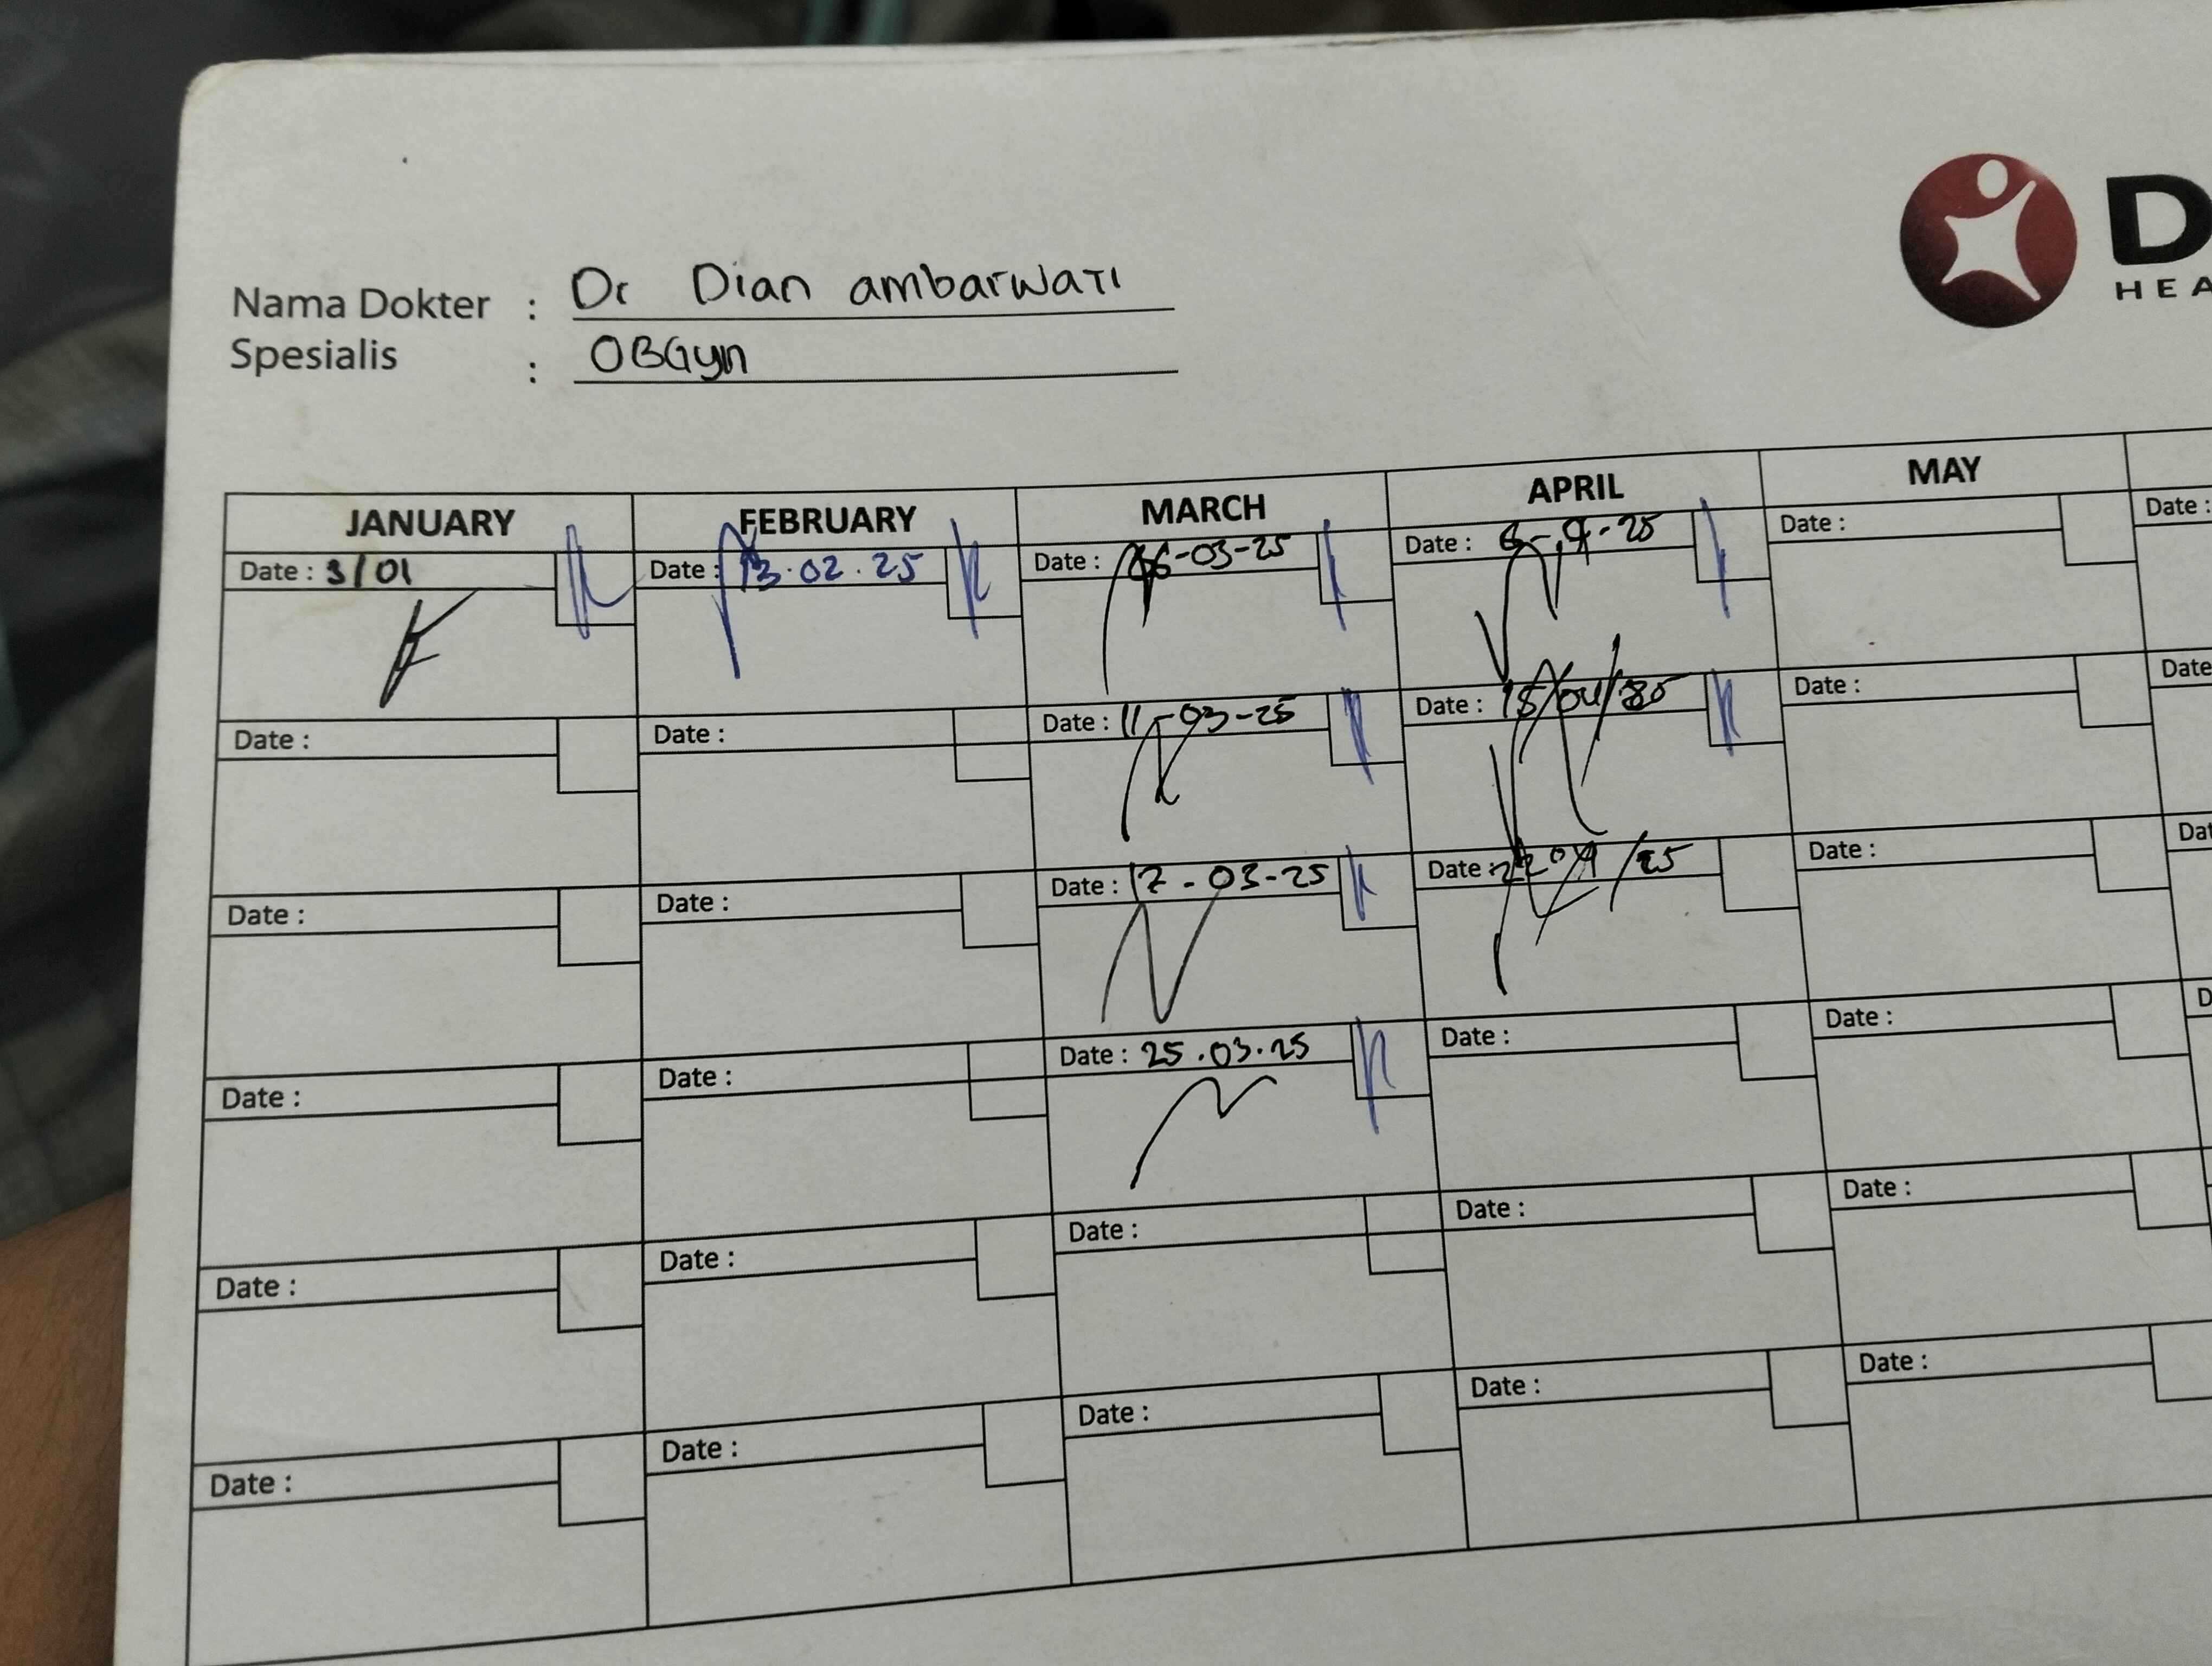 Nama Dokter : Dr Dian ambarwati
Spesialis : OBGyn
D
HEA
JANUARY FEBRUARY MARCH APRIL MAY
Date : 3/01 Date : 13.02.25 Date : 06-03-25 Date : Date : Date :
Date : Date : Date : 11-03-25 Date : 15/04/25 Date : Date
Date : Date : Date : 17-03-25 Date : 22 04/25 Date : Dat
Date : Date : Date : 25.03.25 Date : Date : D
Date : Date : Date : Date : Date :
Date : Date : Date : Date : Date :